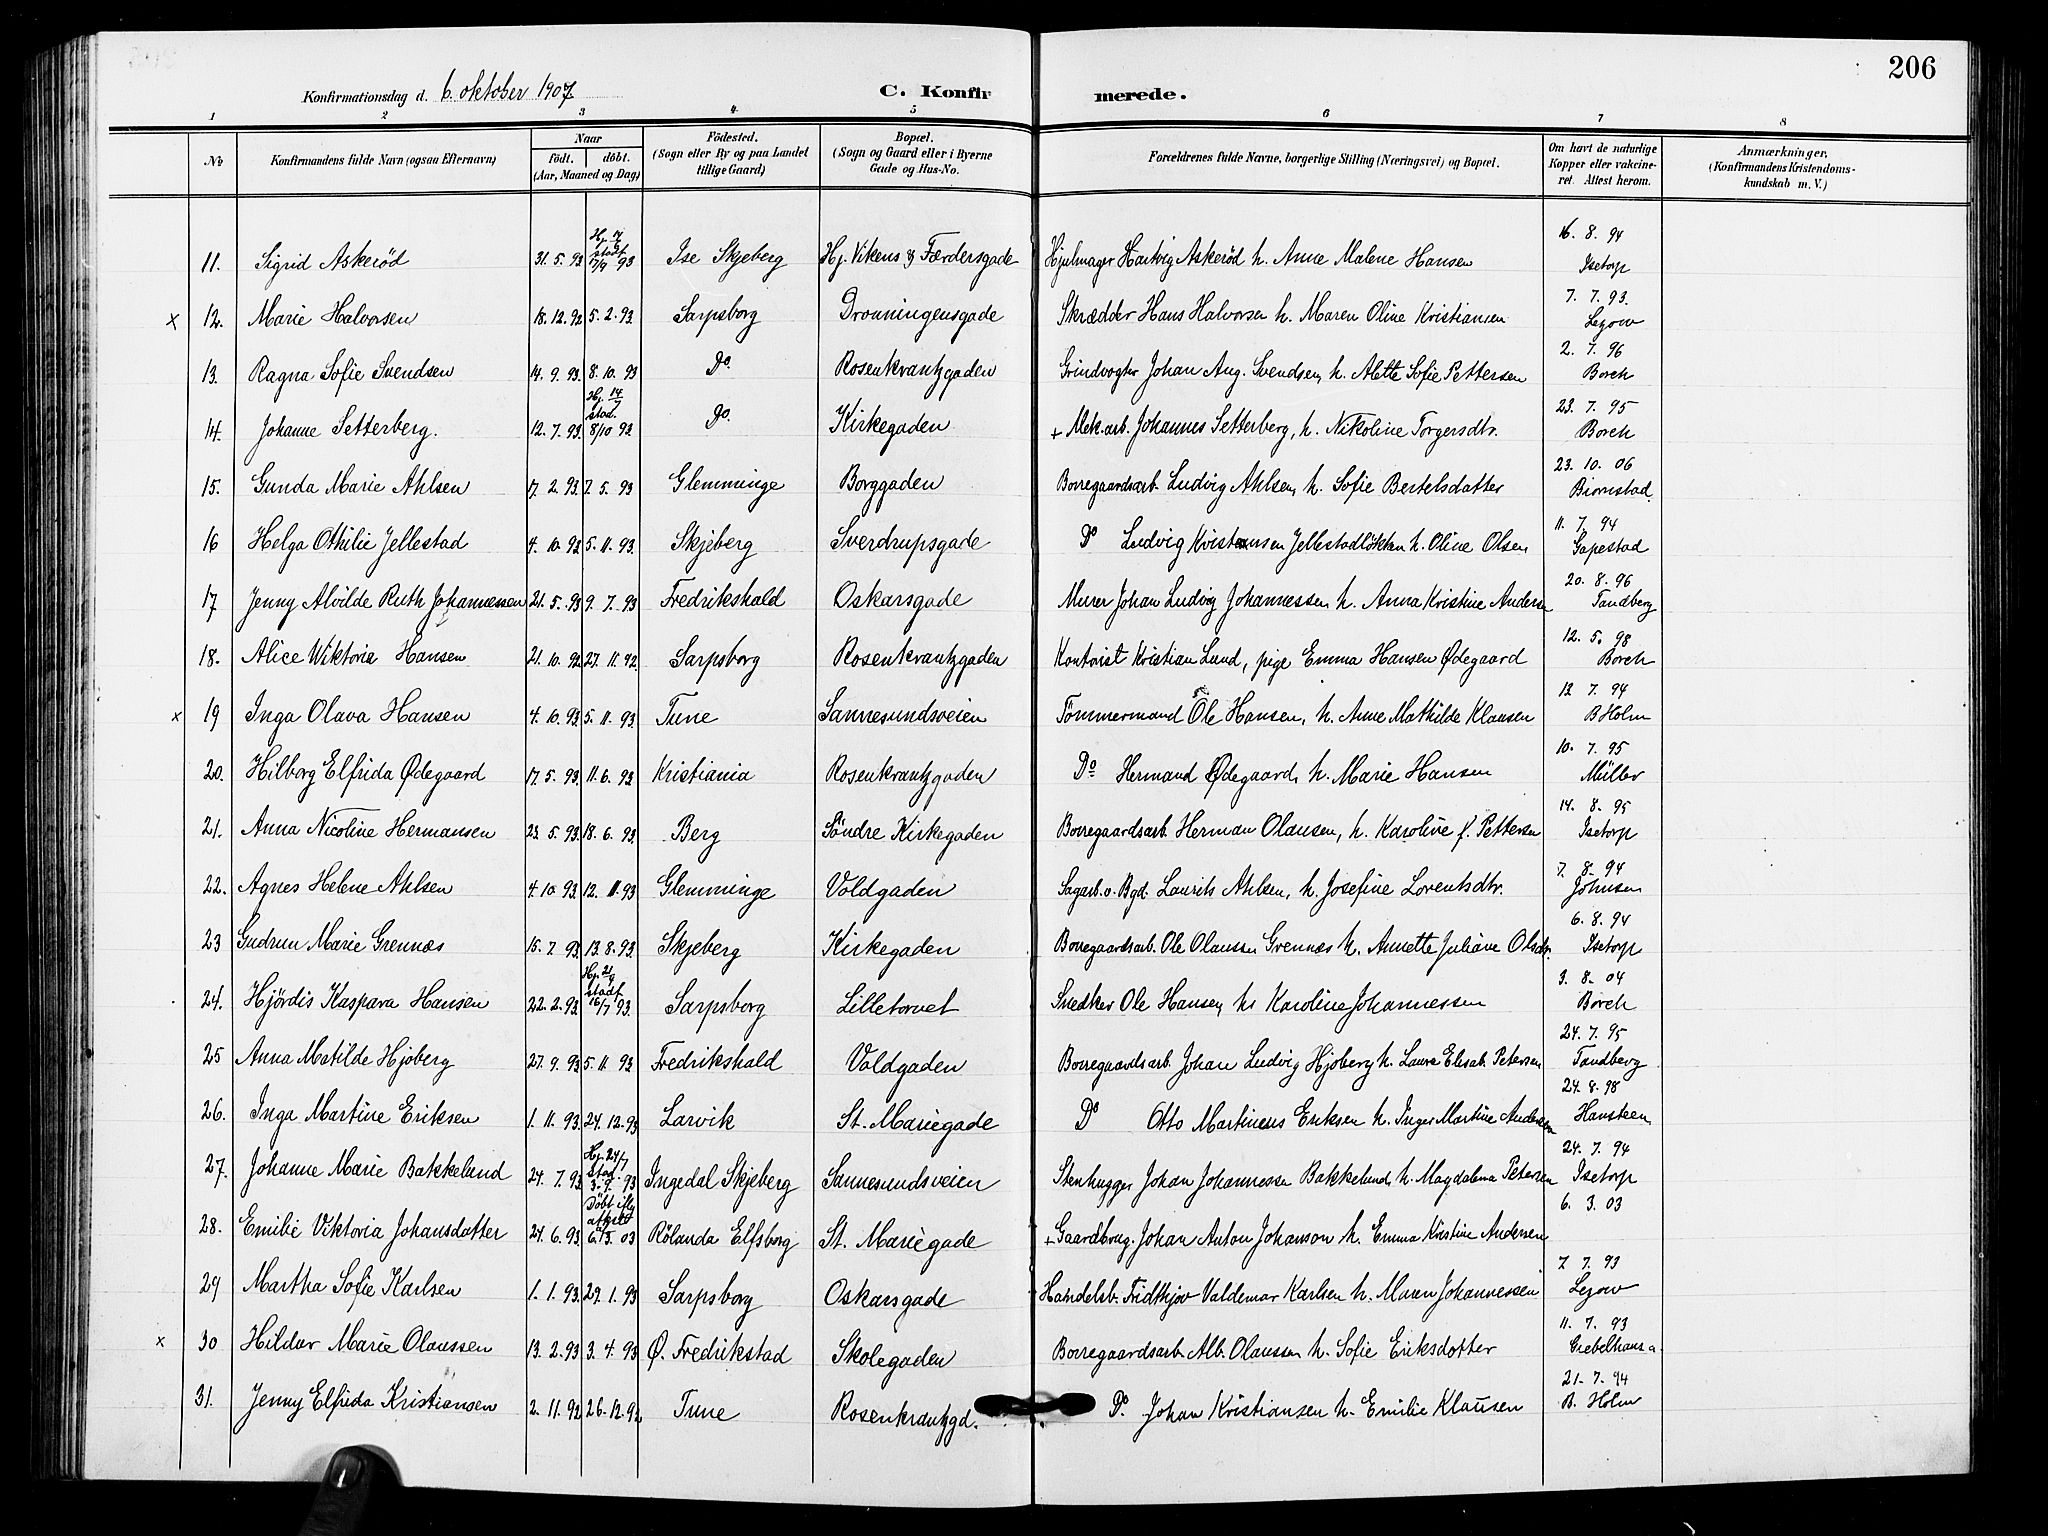 206
Konfirmationsdag d. 6. oktober 1907 C. Konfir merede.
1 2 3 4 5 6 7 8
No Konfirmandens fulde Navn (ogsaa Efternavn) Naar födt. döbt. (Aar, Maaned og Dag) Födested. (Sogn eller By og paa Landet tillige Gaard) Bopæl. (Sogn og Gaard eller i Byerne Gade og Hus-No. Forældrenes fulde Navne, borgerlige Stilling (Næringsvei) og Bopæl. Om havt de naturlige Kopper eller vakcineret. Attest herom. Anmærkninger. (Konfirmandens Kristendomskundskab m. V.)
11. Sigrid Askeröd 31. 5. 93 Hj. stadf. 17/9 93 Ise Skjeberg Hj. Vikens & Færdersgade Hjulmager Hartvig Askeröd h. Anne Malene Hansen 16. 8. 94 Isetorp
x 12. Marie Halvorsen 18. 12. 92 5. 2. 93. Sarpsborg Dronningensgade Skrædder Hans Halvorsen h. Maren Oline Kristiansen 7. 7. 93. Legow
13. Ragna Sofie Svendsen 14. 9. 93. 8. 10. 93 Do. Rosenkrantzgaden Grindvogter Johan Aug. Svendsen, h. Alette Sofie Pettersen 2. 7. 96 Borch
14. Johanne Setterberg. 12. 7. 93. Hj. 14/7 stad. 8/10 93 Do. Kirkegaden + Mek.arb. Johannes Setterberg, h. Nikoline Torgersdtr. 23. 7. 95 Borch
15. Gunda Marie Ahlsen 17. 2. 93. 7. 5. 93 Glemminge Borggaden Borregaardsarb. Ludvig Ahlsen, h. Sofie Bertelsdatter 23. 10. 06 Biornstad.
16 Helga Othilie Jellestad 4. 10. 92 5. 11. 93. Skjeberg Sverdrupsgade Do Ludvig Kristensen Jellestadlökken h. Oline Olsen 11. 7. 94 Gapestad
17 Jenny Alvilde Ruth Johannessen 21. 5. 93 9. 7. 93 Fredrikshald Oskarsgade Murer Johan Ludvig Johannessen h. Anna Kristine Andersen 20. 8. 96 Tandberg
18. Alice Wiktoria Hansen 21. 10. 92 27. 11. 92. Sarpsborg Rosenkrantzgaden Kontorist Kristian Lund, pige Emma Hansen Ødegaard 12. 5. 98 Borch
x 19 Inga Olava Hansen 4. 10. 93. 5. 11. 93. Tune Sannesundsveien Tömmermand Ole Hansen, h. Anne Mathilde Klausen 12 7. 94 B Holm
20. Hilborg Elfrida Ødegaard 17. 5. 93. 11. 6. 93 Kristiania Rosenkrantzgaden Do Hermand Ødegaard, h. Marie Hansen 10. 7. 95 Müller
21. Anna Nicoline Hermansen 23. 5. 93. 18. 6. 93. Berg Söndre Kirkegaden Borregaardsarb. Herman Olausen, h. Karoline f. Pettersen 14. 8. 95 Isetorp
22. Agnes Helene Ahlsen 4. 10. 93. 12. 11. 93 Glemminge Voldgaden Sagarb. v. Bgd. Laurits Ahlsen, h. Josefine Lorentsdtr. 7. 8. 94 Johnsen
23 Gudrun Marie Grennæs 15. 7. 93. 13. 8. 93. Skjeberg Kirkegaden Borregaardsarb. Ole Olaussen Grennæs h. Annette Juliane Olsdtr. 6. 8. 94 Isetorp
24. Hjördis Kaspara Hansen 22. 2. 93. Hj. stadf. 16/7 93. Sarpsborg Lilletorvet Snedker Ole Hansen, h. Karoline Johannessen 3. 8. 04 Borch
25 Anna Matilde Hjoberg 27. 9. 93 5. 11 93 Fredrikshald Voldgaden Borregaardsarb. Johan Ludvig Hjöberg h. Laura Elisab. Petersen 24. 7. 95 Tandberg
26. Inga Martine Eriksen 1. 11. 93. 24. 12. 93 Larvik St. Mariegade Do Otto Martinius Eriksen h. Inger Martine Andersen 24. 8. 98 Hansteen
27. Johanne Marie Bakkelund 24. 7. 93 Hj. 24/7 Stad. 3. 9. 93 Ingedal Skjeberg Sannesundsveien Stenhugger Johan Johannessen Bakkelund, h. Magdalena Petersen 24. 7. 94 Isetorp
28. Emilie Viktoria Johansdatter 24. 6. 93. Döbt iflg attest 6. 3. 03 Rölanda Elfsborg St. Mariegade + Gaardbrug. Johan Anton Johanson h. Emma Kristine Andersen 6. 3. 03
29 Martha Sofie Karlsen 1. 1. 93. 29. 1. 93 Sarpsborg Oskarsgade Handelsb. Fridthjov Valdemar Karlsen h. Maren Johannessen 7 7. 93 Legow
x 30 Hildur Marie Olaussen 13. 2. 93 3. 4. 93 Ø. Fredrikstad Skolegaden Borregaardsarb. Alb. Olaussen h. Sofie Eriksdotter 11. 7. 93
31. Jenny Elfrida Kristiansen 2. 11. 92 26. 12. 92, Tune Rosenkrantzgd. Do. Johan Kristiansen h. Emilie Klausen 21. 7. 94 B. Holm